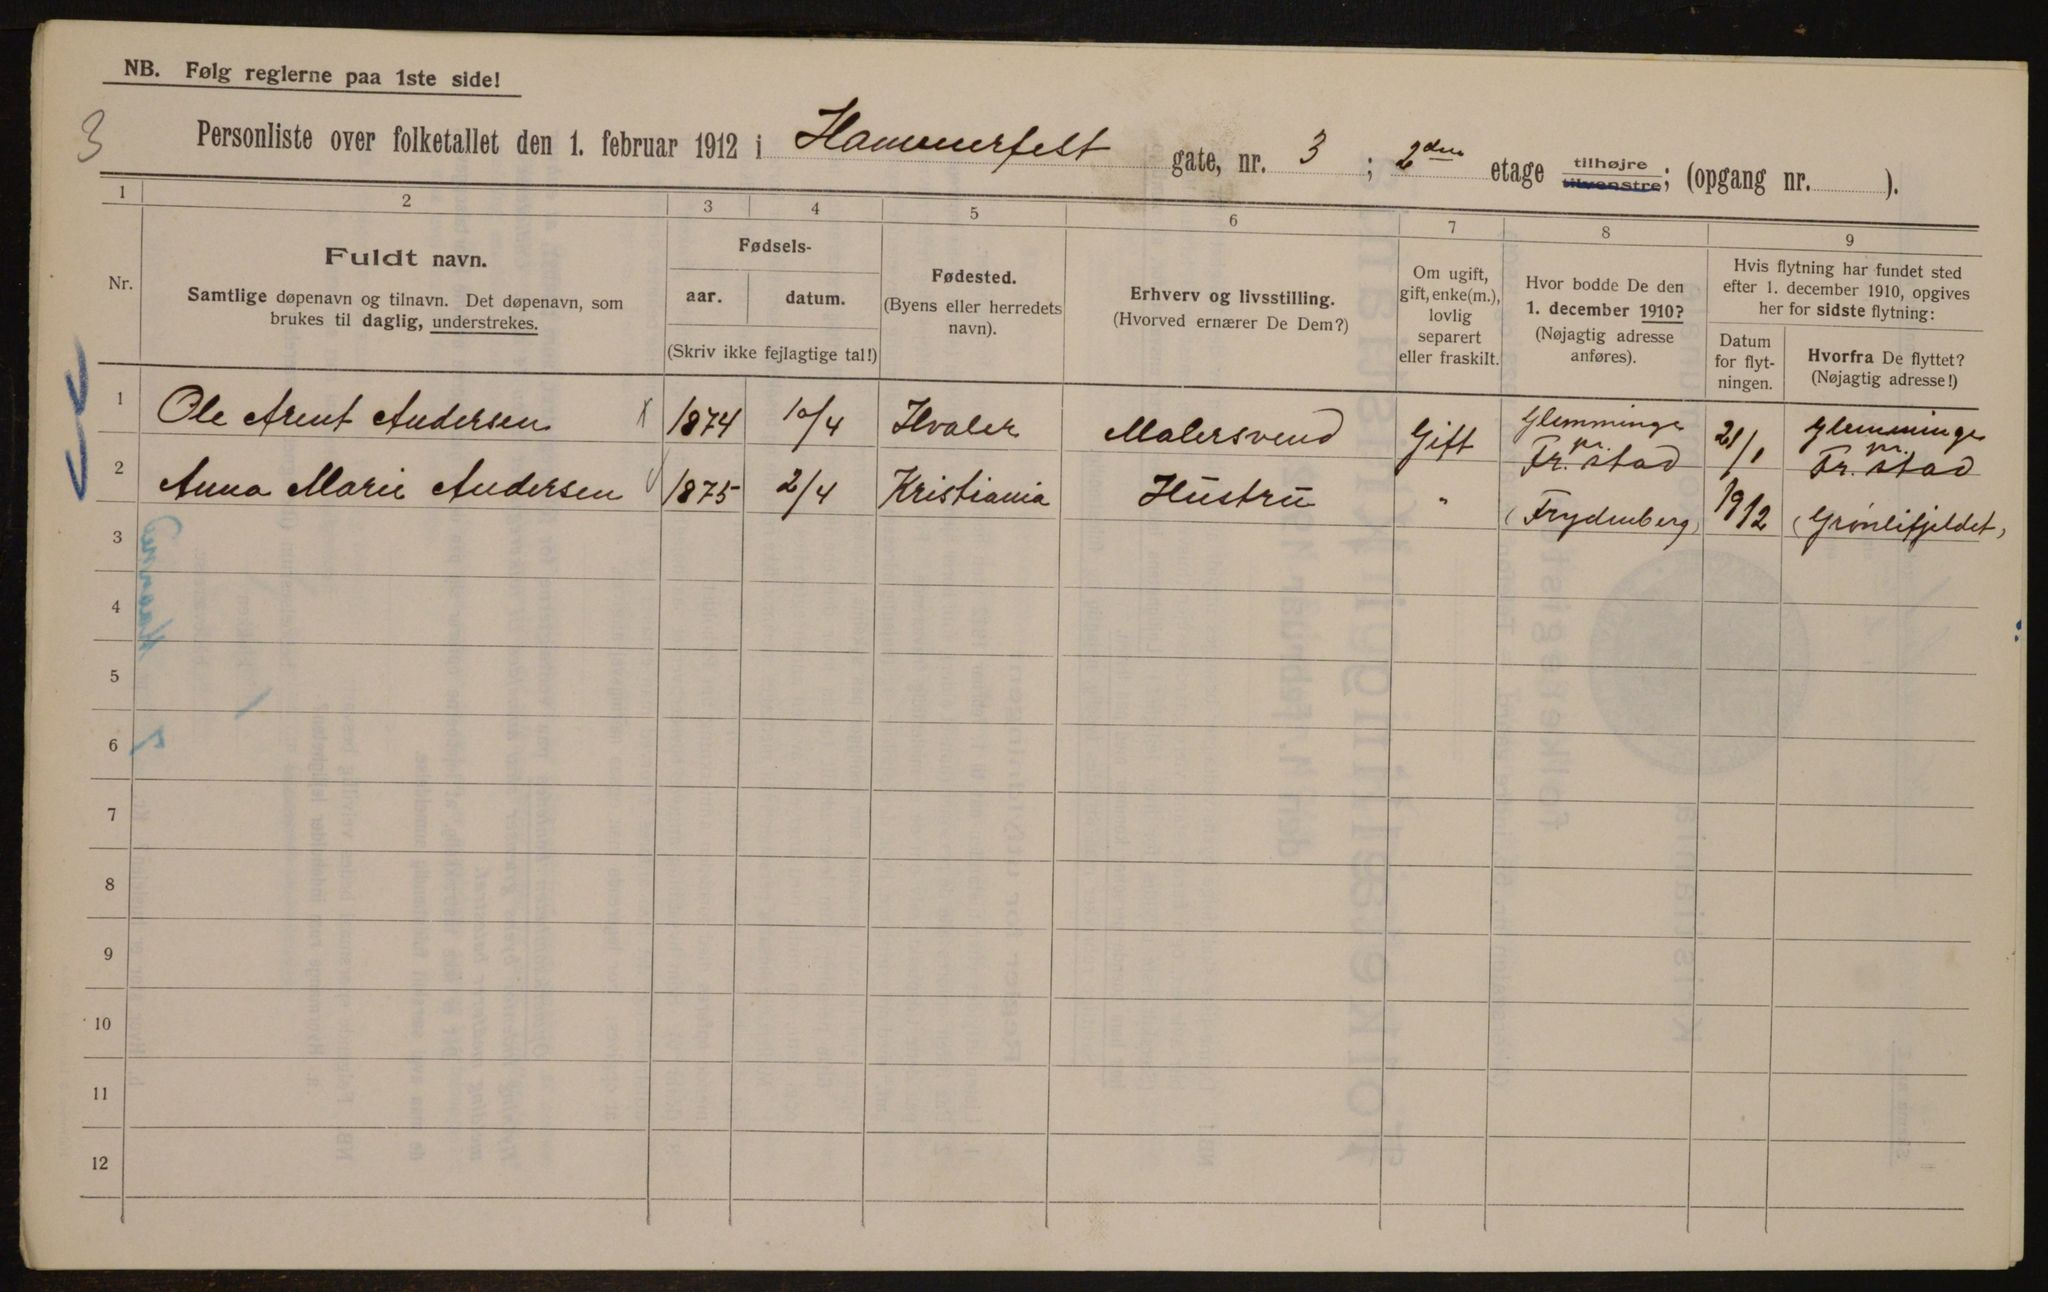 NB. Følg reglerne paa 1ste side!
3
Personliste over folketallet den 1. februar 1912 i Hammerfest gate, nr. 3; 2den etage tilhøjre tilvenstre; (opgang nr. ).
1 2 3 4 5 6 7 8 9
Nr.
Fuldt navn.
Samtlige døpenavn og tilnavn. Det døpenavn, som
brukes til daglig, understrekes.
Fødsels-
aar. datum.
(Skriv ikke fejlagtige tal!)
Fødested.
(Byens eller herredets
navn).
Erhverv og livsstilling.
(Hvorved ernærer De Dem?)
Om ugift,
gift, enke(m.),
lovlig
separert
eller fraskilt.
Hvor bodde De den
1. december 1910?
(Nøjagtig adresse
anføres).
Hvis flytning har fundet sted
efter 1. december 1910, opgives
her for sidste flytning:
Datum
for flyt-
ningen.
Hvorfra De flyttet?
(Nøjagtig adresse!)
1 Ole Arent Andersen 1874 10/4 Hvaler Malersvend Gift Glemminge pr. Fr.stad 21/1 Glemminge pr. Fr.stad
2 Anna Marie Andersen 1875 2/4 Kristiania Hustru " (Frydenberg) 1912 (Grønlifjeldet)
3
4
5
6
7
8
9
10
11
12